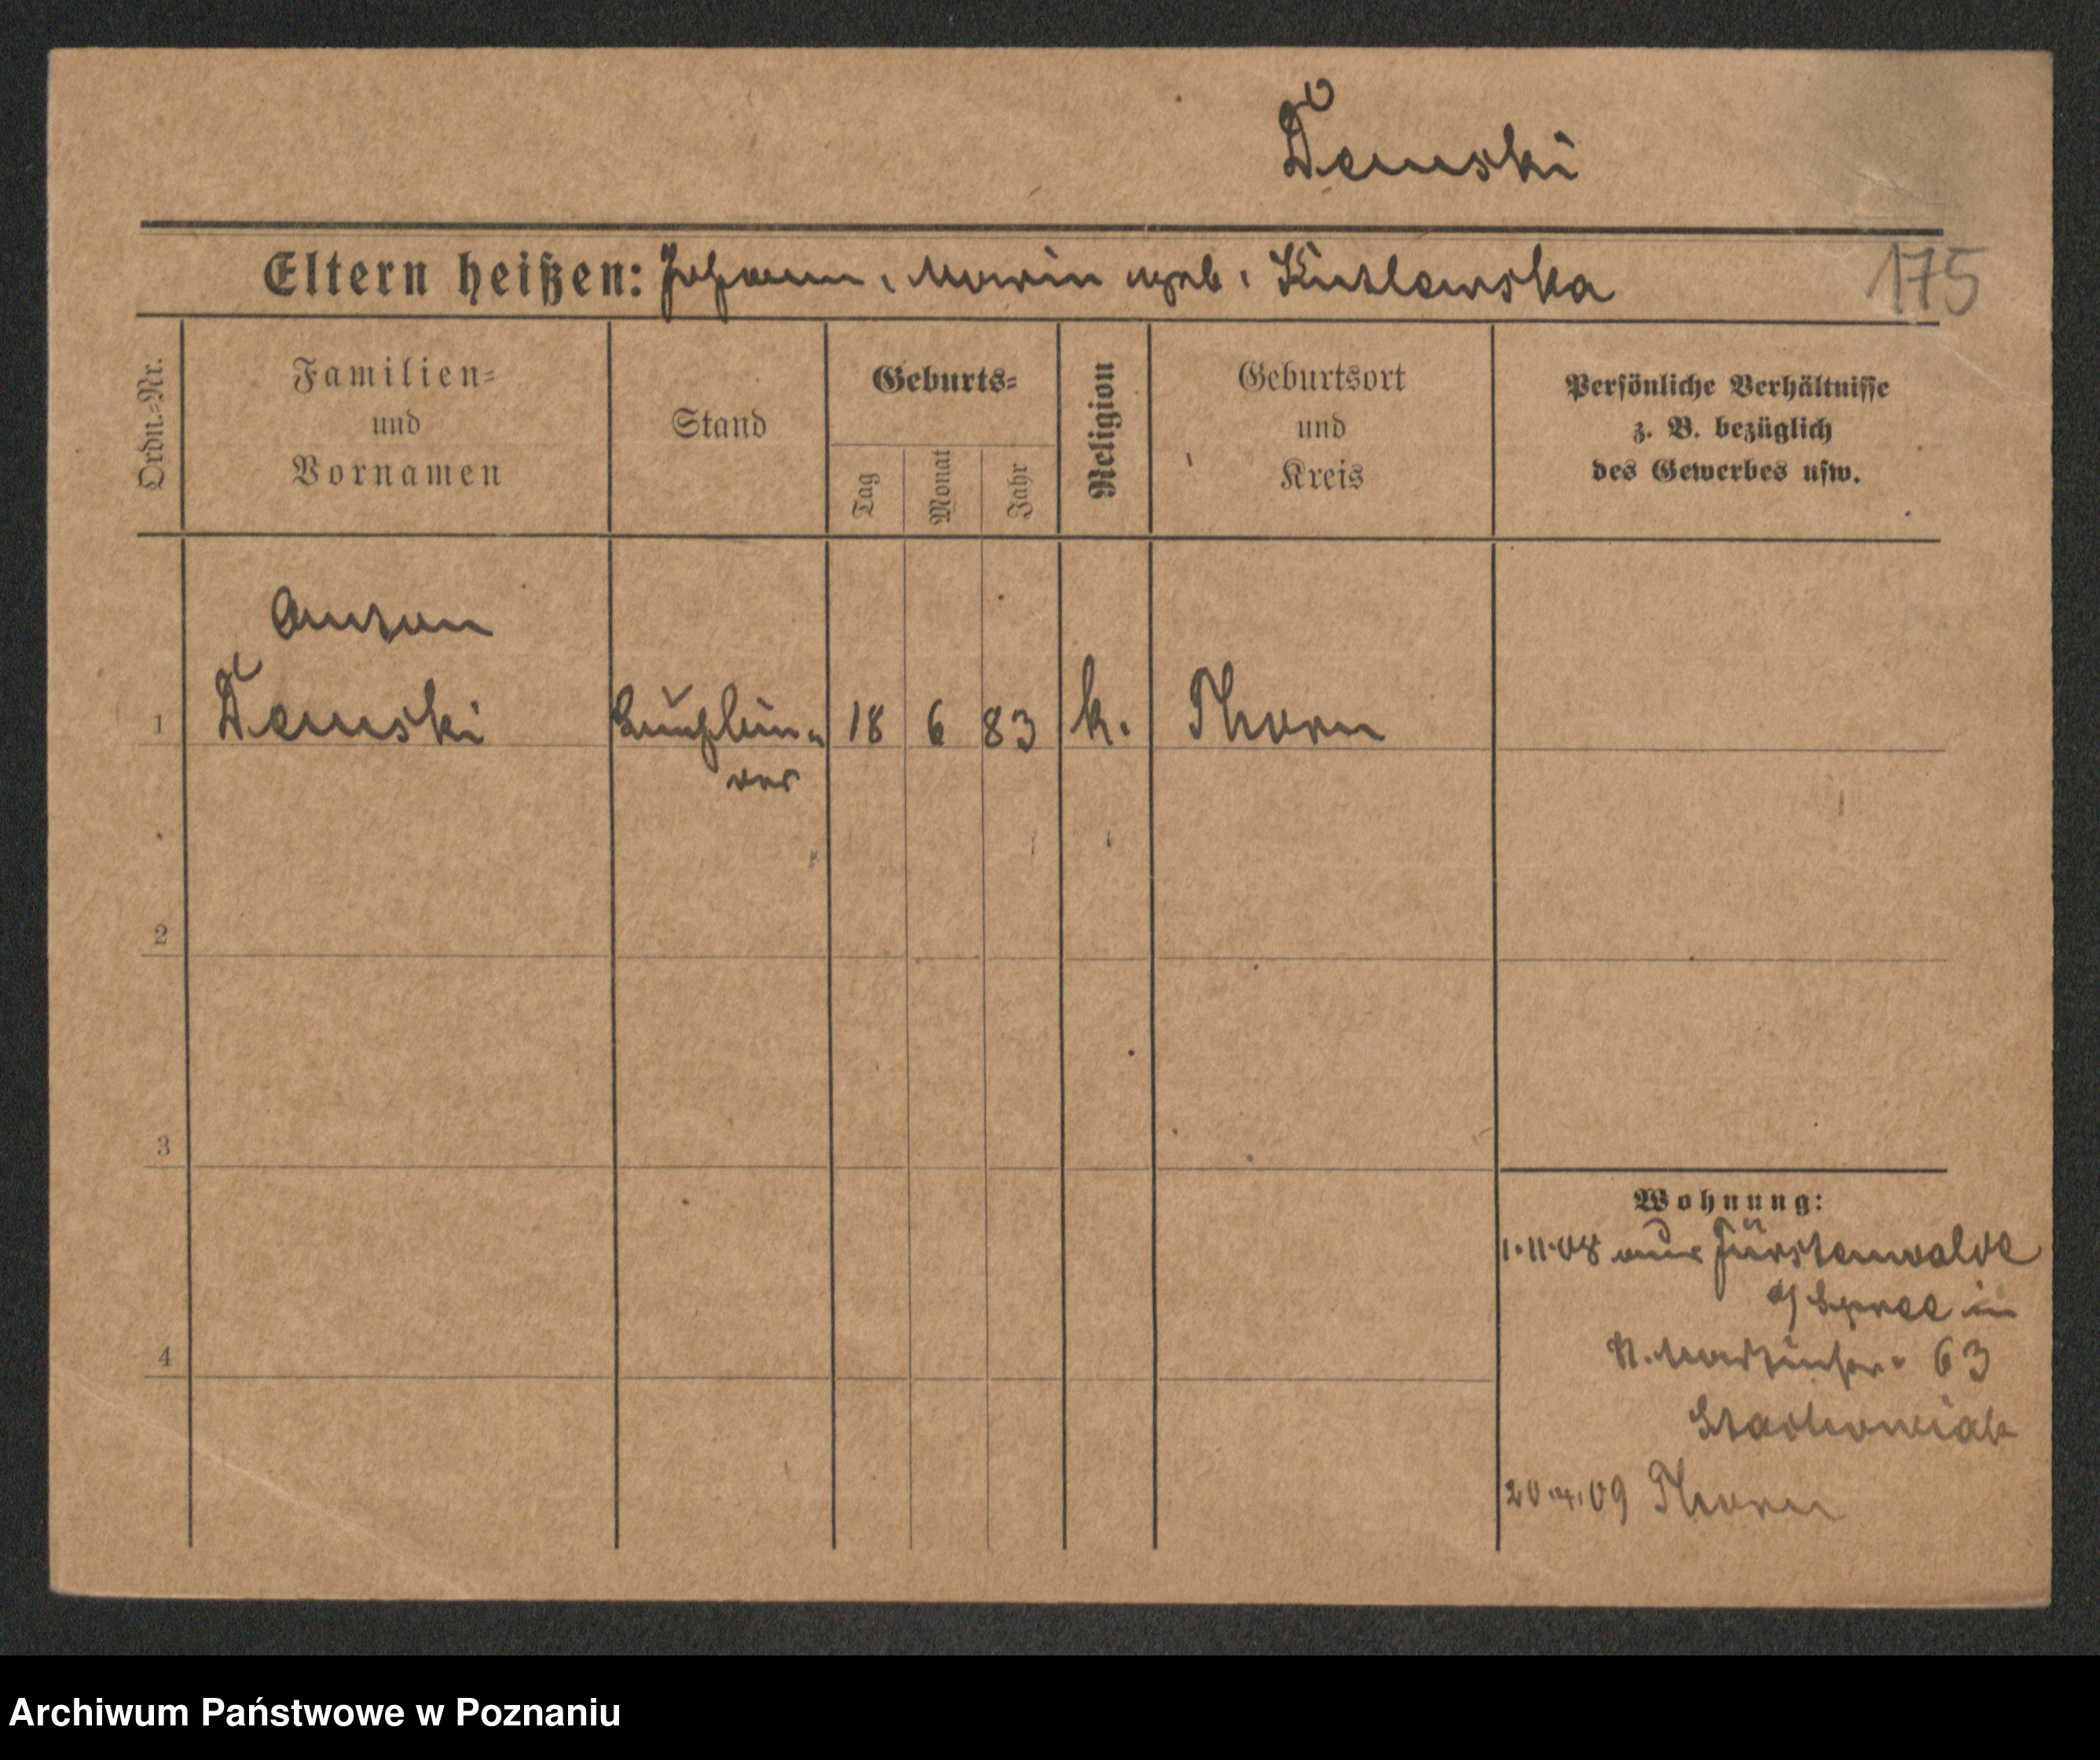 Demski
Eltern heißen: Johann, Maria geb. Kutlewska
175
Ordn.=Nr.
Familien=
und
Vornamen
Stand
Geburts=
Tag
Monat
Jahr
Religion
Geburtsort
und
Kreis
Persönliche Verhältnisse
z. B. bezüglich
des Gewerbes usw.
Anton
1 Demski 18 6 83 k. Thorn
2
3
4
Wohnung:
1.11.08 aus Fürstenwalde
a/Spree in
N. Gartenstr. 63
Stachowiak
20.4.09 Thorn
Archiwum Państwowe w Poznaniu